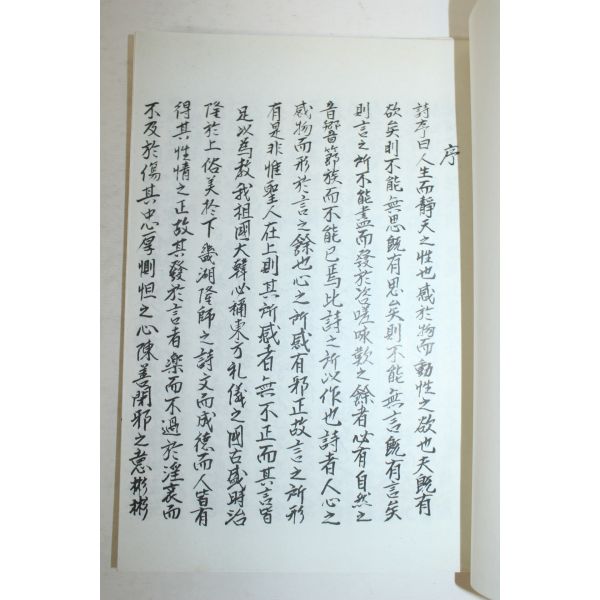 序
詩序曰人生而靜天之性也感於物而動性之欲也夫旣有
欲矣則不能無思旣有思矣則不能無言旣有言矣
則言之所不能盡而發於咨嗟咏歎之餘者必有自然之
音響節族而不能已焉此詩之所以作也詩者人心之
感物而形於言之餘也心之所感有邪正故言之所形
有是非惟聖人在上則其所感者無不正而其言皆
足以爲教我祖國大韓必稱東方礼儀之國古盛時治
隆於上俗美於下畿湖隆師之詩文而成德而人皆有
得其性情之正故其發於言者樂而不過於淫哀而
不及於傷其忠厚惻怛之心陳善閉邪之意彬彬